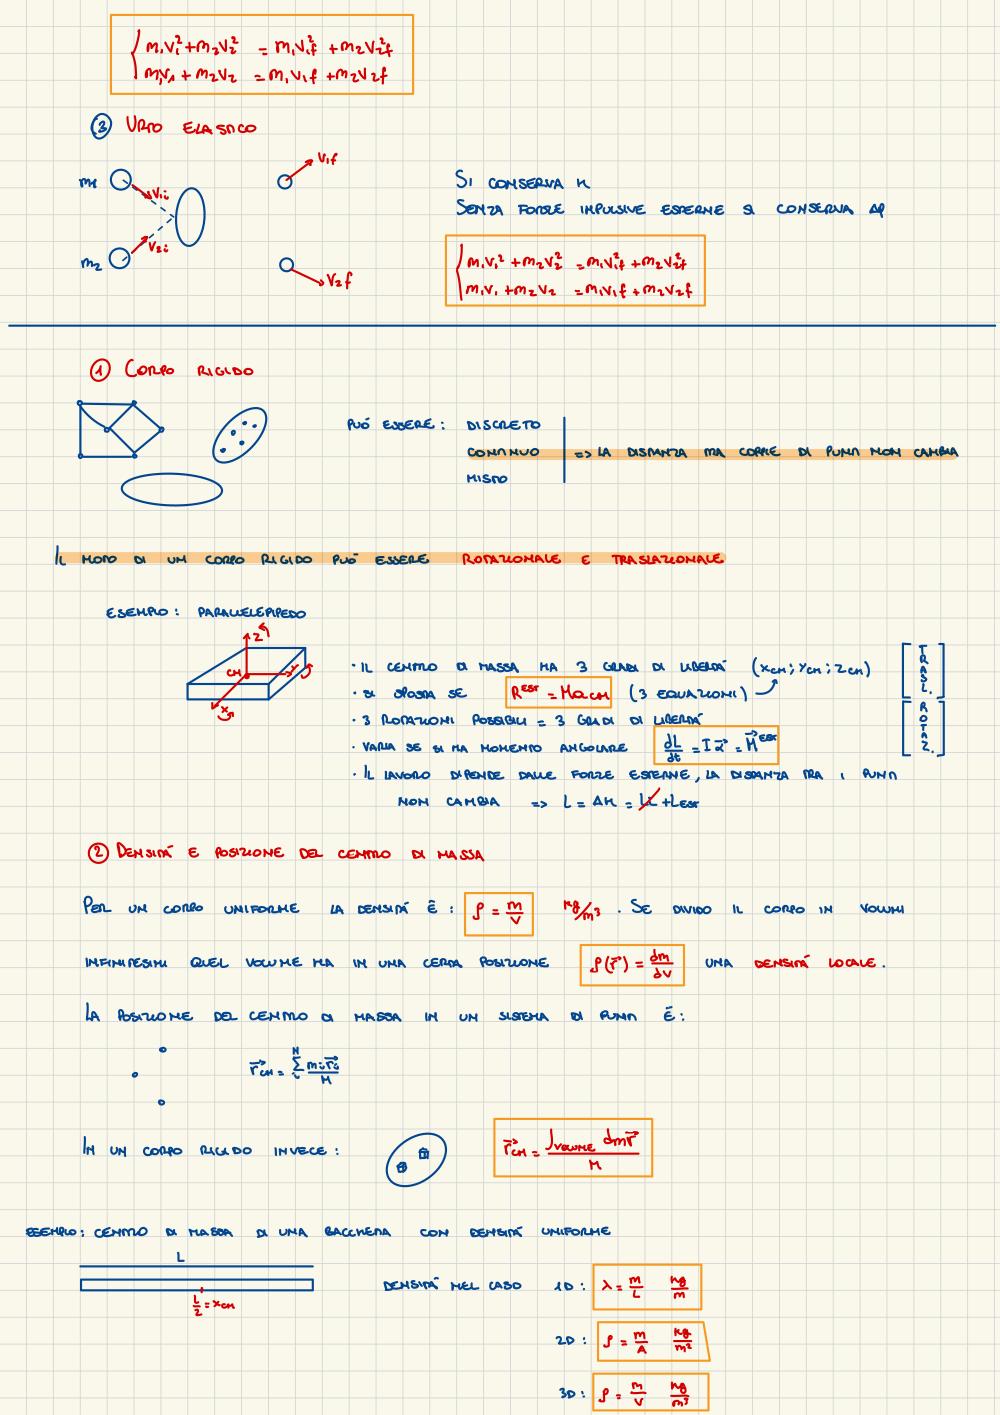 m₁v₁² + m₂v₂² = m₁v₁f² + m₂v₂f²
m₁v₁ + m₂v₂ = m₁v₁f + m₂v₂f
③ URTO ELASTICO
m₁
v₁i
v₁f
m₂
v₂i
v₂f
SI CONSERVA K
SENZA FORZE IMPULSIVE ESTERNE SI CONSERVA ΔP
m₁v₁² + m₂v₂² = m₁v₁f² + m₂v₂f²
m₁v₁ + m₂v₂ = m₁v₁f + m₂v₂f
① CORPO RIGIDO
PUÓ ESSERE: DISCRETO
CONTINUO => LA DISTANZA TRA COPPIE DI PUNTI NON CAMBIA
MISTO
IL MOTO DI UN CORPO RIGIDO PUÓ ESSERE ROTAZIONALE E TRASLAZIONALE
ESEMPIO: PARALLELEPIPEDO
Z
CM
Y
X
· IL CENTRO DI MASSA HA 3 GRADI DI LIBERTÁ (xCM; yCM; zCM)
· SI SPOSTA SE R^EST = MaCM (3 EQUAZIONI)
TRASL.
· 3 ROTAZIONI POSSIBILI = 3 GRADI DI LIBERTÁ
· VARIA SE SI HA MOMENTO ANGOLARE dL/dt = I α⃗ = M⃗^EST
ROTAZ.
· IL LAVORO DIPENDE DALLE FORZE ESTERNE, LA DISTANZA TRA I PUNTI
NON CAMBIA => L = ΔK = Li + LEST
② DENSITÁ E POSIZIONE DEL CENTRO DI MASSA
PER UN CORPO UNIFORME LA DENSITÁ É: ρ = m/V kg/m³ . SE DIVIDO IL CORPO IN VOLUMI
INFINITESIMI QUEL VOLUME HA IN UNA CERTA POSIZIONE ρ(r⃗) = dm/dV UNA DENSITÁ LOCALE.
LA POSIZIONE DEL CENTRO DI MASSA IN UN SISTEMA DI PUNTI É:
r⃗CM = Σᵢᴺ mᵢr⃗ᵢ/M
IN UN CORPO RIGIDO INVECE:
r⃗CM = ∫VOLUME dm r⃗ / M
ESEMPIO: CENTRO DI MASSA DI UNA BACCHETTA CON DENSITÁ UNIFORME
L
L/2 = xCM
DENSITÁ NEL CASO 1D: λ = m/L kg/m
2D: ρ = m/A kg/m²
3D: ρ = m/V kg/m³